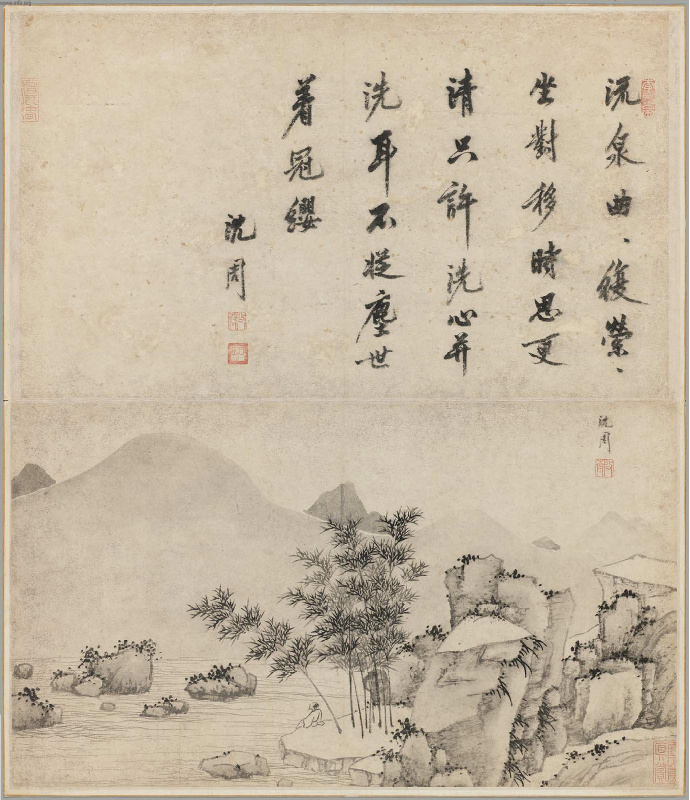 流泉曲、復縈、
坐對移時思更
请只許洗心并
洗耳不从塵世
着冠纓
沈周
沈周